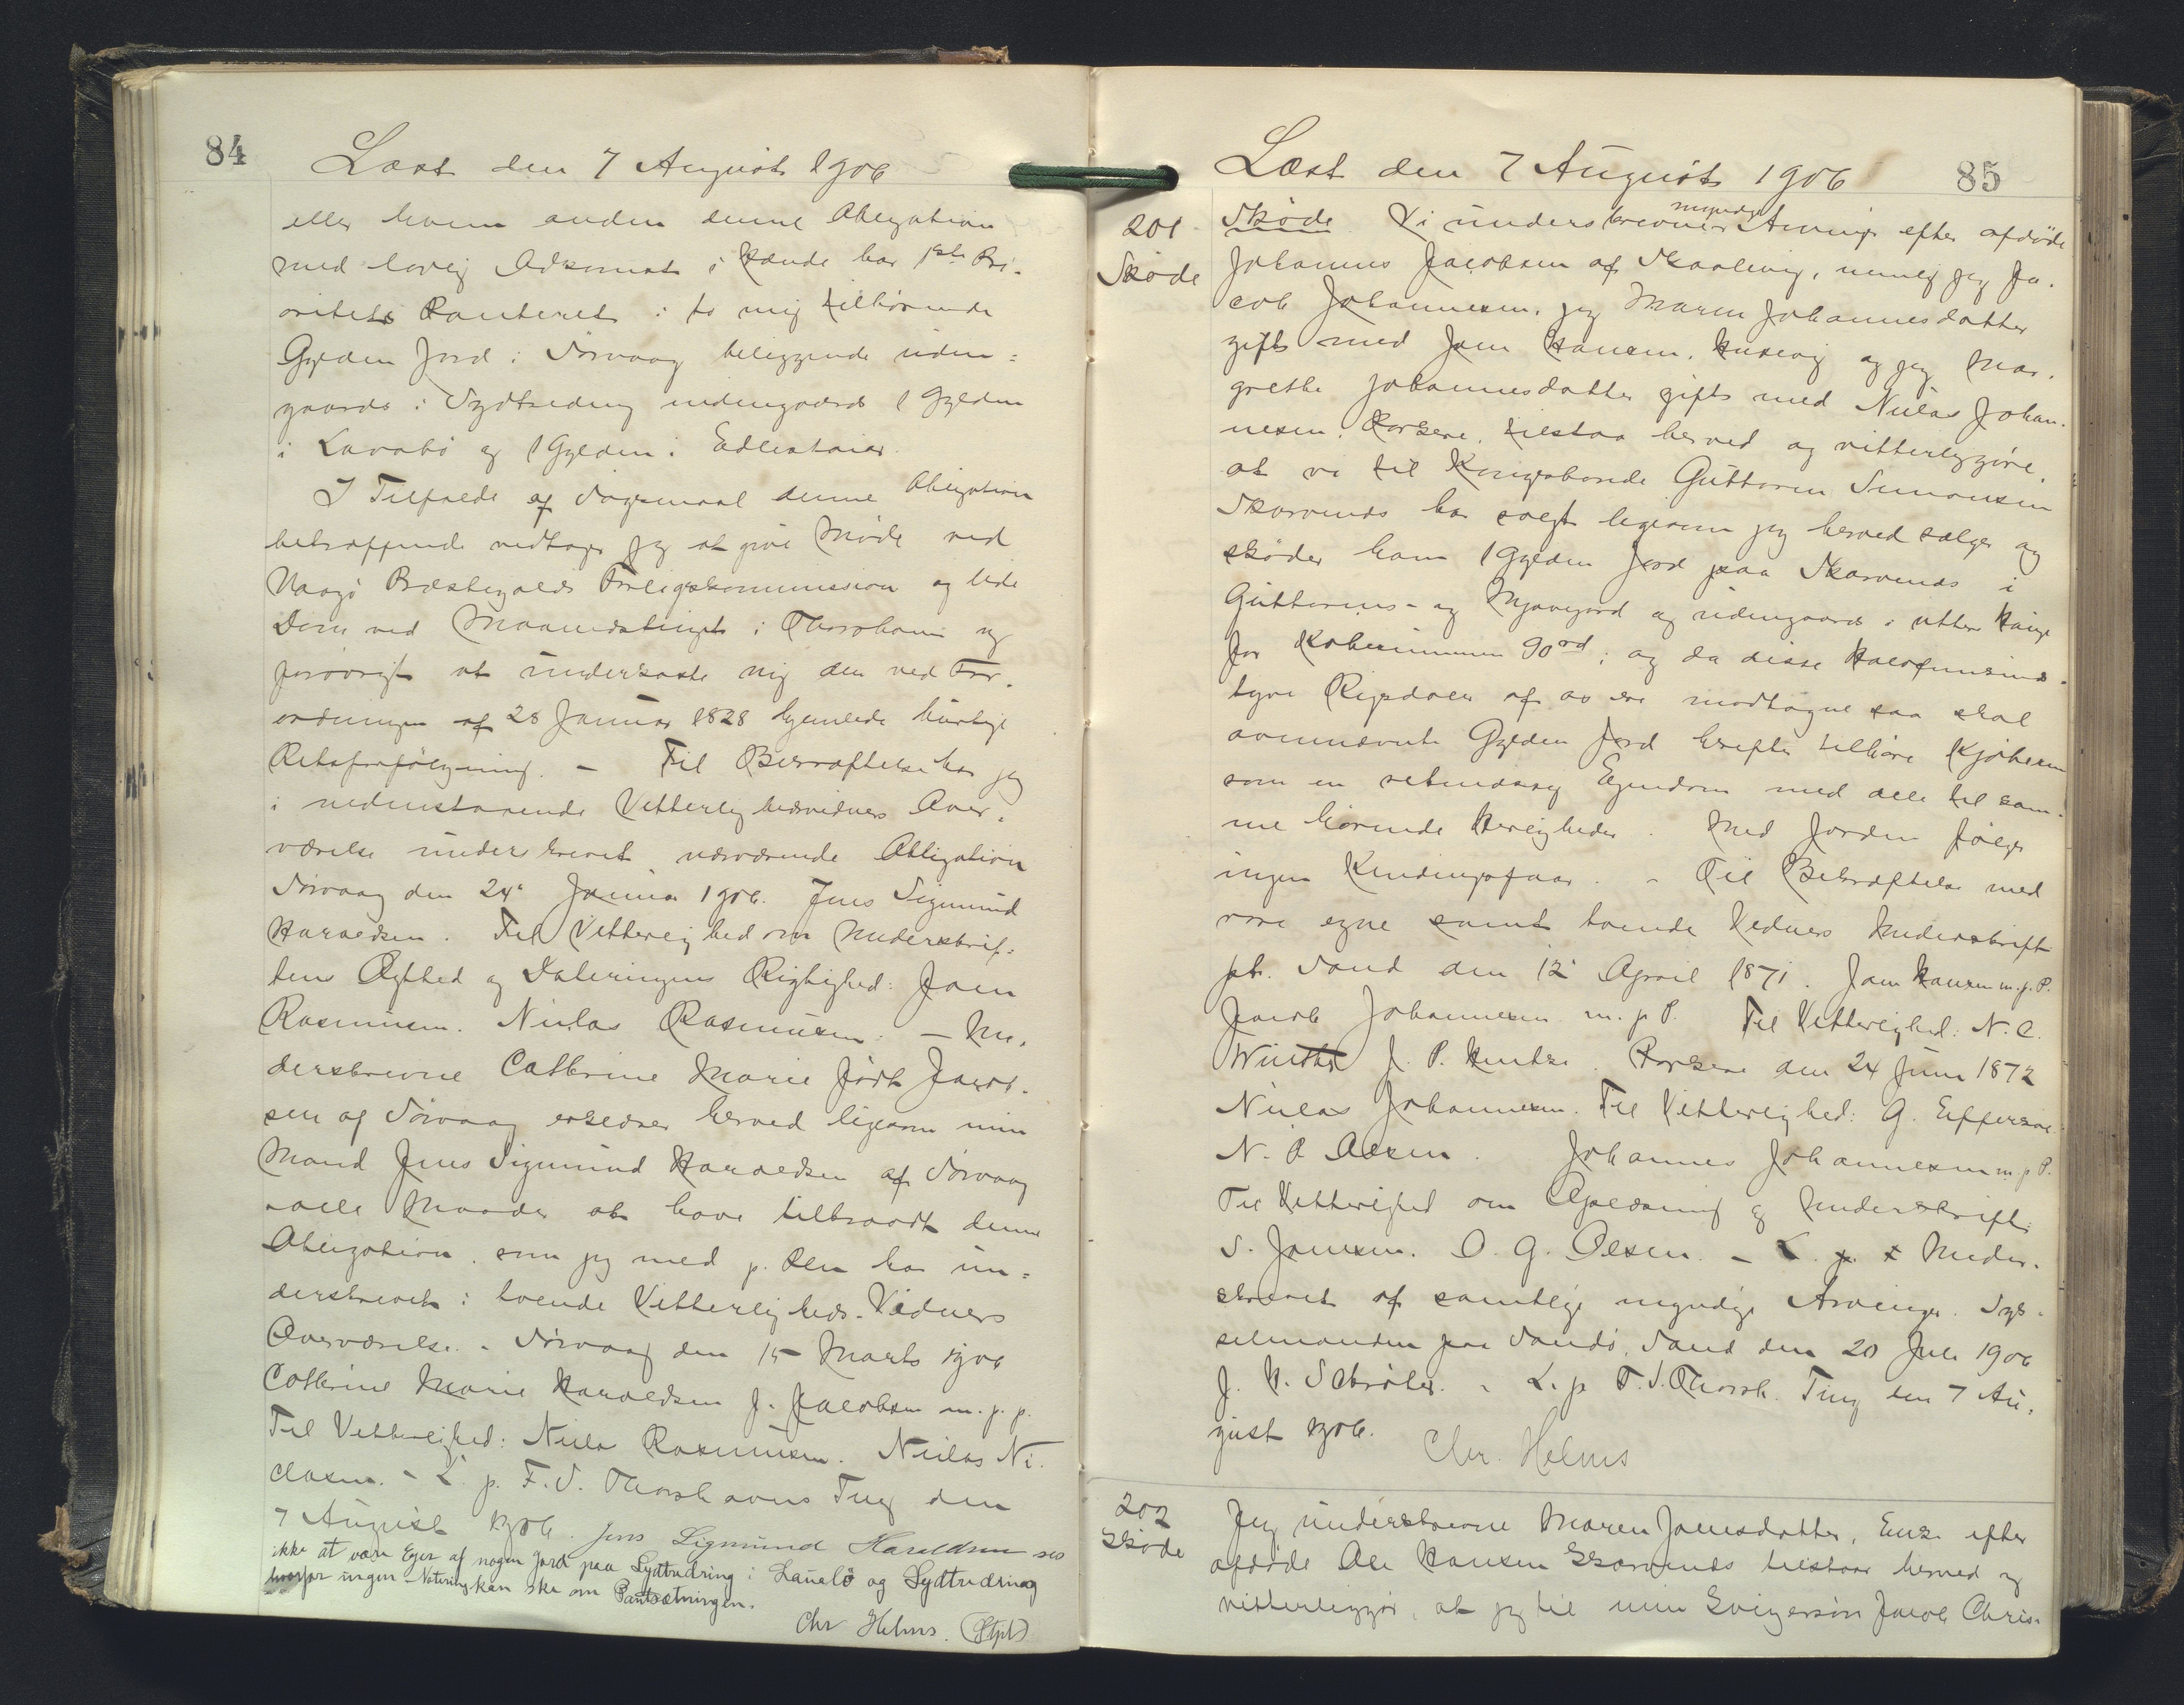 84
Læst den 7 August 1906
eller hvem anden denne Obligation
med lovlig Adkomst i Hænde har 1ste Pri-
oritets Panteret i to mig tilhørende
Gylden Jord i Sörvaag beliggende uden-
gaards i Sydtredeng indengaards 1 Gylden
i Lavabö og 1 Gylden i
I Tilfælde af Sögsmaal denne Obligation
betræffende vedtager jeg at give Möde ved
Vaagö Præstegjelds Forligskommission og lide
Dom ved Maanedstinget i Thorshavn og
forövrigt at underkaste mig den ved For-
ordningen af 28 Januar 1828 hjemlede hurtige
Retsforfölgning. - Til Bekræftelse har jeg
i nedenstaaende Vitterlighedsvidners Over-
værelse underskrevet nærværende Obligation
Sörvaag den 24' Januar 1906. Jens Sigmund
Haraldsen. Til Vitterlighed om Underskrif-
tens Ægthed og Dateringens Rigtighed: Joen
Rasmussen. Niclas Rasmussen. - Un-
derskrevne Cathrine Marie födt Jacob-
sen af Sörvaag erklærer herved ligesom min
Mand Jens Sigmund Haraldsen af Sörvaag
i alle Maader at have tiltraadt denne
Obligation, som jeg med p. Pen har un-
derskrevet i tvende Vitterligheds-Vidners
Overværelse. - Sörvaag den 15 Marts 1906
Cathrine Marie Haraldsen f. Jacobsen m. p. p.
Til Vitterlighed: Niels Rasmussen. Niclas Ni-
clasen. - L. p. F. S. Thorshavns Ting den
7 August 1906. Jens Sigmund Haraldsen ses
ikke at være Ejer af nogen Jord paa Sydtrædring i Lauabö og Sydtrædring
hvorfor ingen Notering kan ske om Pantsætningen.
Chr Helms. (Stpl)
Læst den 7 August 1906
85
201
Sköde
Sköde. Vi underskrevne myndige Arvinger efter afdöde
Johannes Jacobsen af Skaalevig, nemlig jeg Ja-
cob Johannesen, jeg Maren Johannesdatter
gift med Joen Hansen, Husevig og jeg Mar-
grethe Johannesdatter gift med Niclas Johan-
nesen, Porkere, tilstaa herved og vitterliggöre,
at vi til Kongsbonde Guttorm Simonsen
Skarvenes har solgt ligesom jeg herved sælger og
sköder ham 1 Gylden Jord paa Skarvenes i
Guttorms- og Mjavegard og udengaards i uttara Hauge
for Kobesummen 90 rd; og da disse Halvfemsinds-
tyve Rigsdaler af os ere modtagne saa skal
ovennævnte Gylden Jord herefter tilhöre Kjöberen
som en retmæssig Eiendom med alle til sam-
me hörende Herligheder. Med Jorden fölger
ingen Kendingsfaar. - Til Bekræftelse med
vore egne samt tvende Vidners Underskrift
pt. Sand den 12' April 1871. Joen Hansen m. p. P.
Jacob Johannesen m. p P. Til Vitterlighed: N. C.
Winther J. P. Hentze. Porkere den 24 Juni 1872
Niclas Johannesen. Til Vitterlighed: G. Effersöe
N. P Olsen. Johannes Johannesen m. p P.
Til Vitterlighed om Oplæsning og Underskrift:
S. Joensen. O. G. Olsen. - L. p. t Under-
skrevet af samtlige myndige Arvinger. Sys-
selmanden paa Sandö, Sand den 20 Juli 1906
J. H. Schröter. - L. p F. S. Thorsh. Ting den 7 Au-
gust 1906.
Chr. Helms
202
Sköde
Jeg underskrevne Maren Joensdatter, Enke efter
afdöde Ole Hansen Skarvenes tilstaar herved og
vitterliggör, at jeg til min Svigersön Jacob Chris-